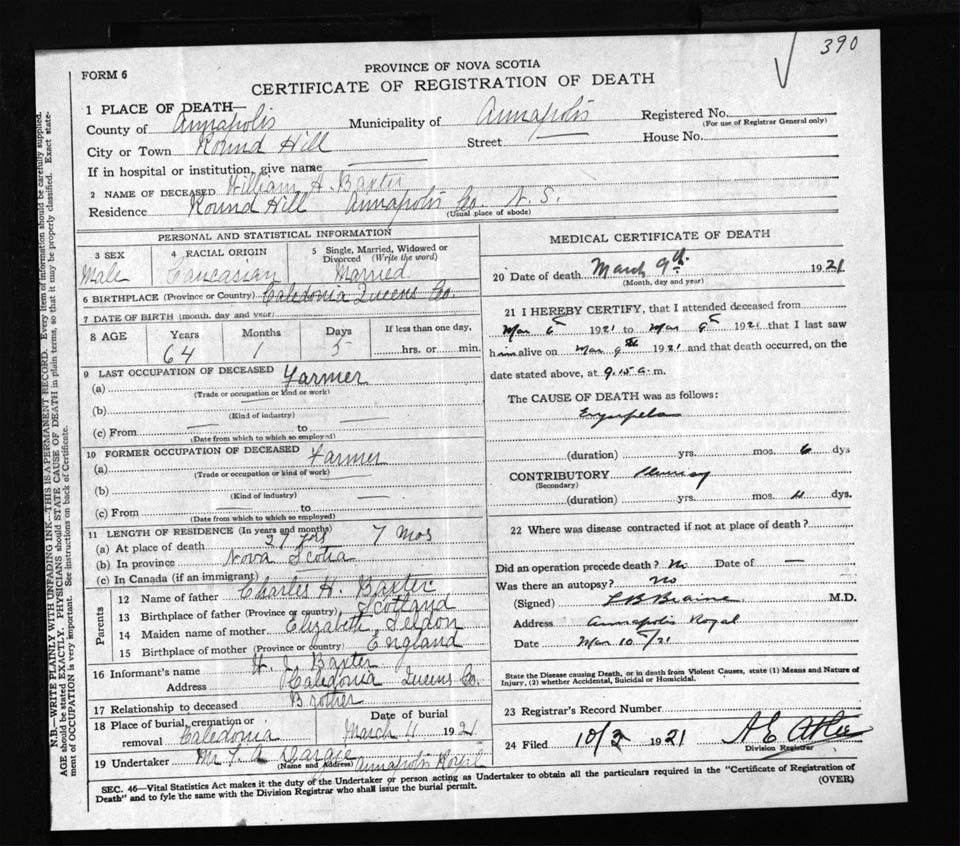 390
FORM 6
PROVINCE OF NOVA SCOTIA
CERTIFICATE OF REGISTRATION OF DEATH
1 PLACE OF DEATH—
County of Annapolis Municipality of Annapolis Registered No.
(For use of Registrar General only)
City or Town Round Hill Street House No.
If in hospital or institution, give name
2 NAME OF DECEASED William H. Baxter
Residence Round Hill Annapolis Co. N. S.
(Usual place of abode)
PERSONAL AND STATISTICAL INFORMATION
3 SEX 4 RACIAL ORIGIN 5 Single, Married, Widowed or Divorced (Write the word)
Male Caucasian Married
6 BIRTHPLACE (Province or Country) Caledonia Queens Co.
7 DATE OF BIRTH (month, day and year)
8 AGE Years Months Days If less than one day,
64 1 5 hrs. or min.
9 LAST OCCUPATION OF DECEASED
(a) Farmer
(Trade or occupation or kind or work)
(b)
(Kind of industry)
(c) From to
(Date from which to which so employed)
10 FORMER OCCUPATION OF DECEASED
(a) Farmer
(Trade or occupation or kind of work)
(b)
(Kind of industry)
(c) From to
(Date from which to which so employed)
11 LENGTH OF RESIDENCE (In years and months)
(a) At place of death 29 yrs 7 mos
(b) In province Nova Scotia
(c) In Canada (if an immigrant)
Parents
12 Name of father Charles H. Baxter
13 Birthplace of father (Province or country) Scotland
14 Maiden name of mother Elizabeth
15 Birthplace of mother (Province or country) England
16 Informant's name Baxter
Address Caledonia Queens Co.
17 Relationship to deceased Brother
18 Place of burial, cremation or removal Caledonia
Date of burial March 11 1921
19 Undertaker Annapolis Royal
(Name and Address)
MEDICAL CERTIFICATE OF DEATH
20 Date of death March 9th 1921
(Month, day and year)
21 I HEREBY CERTIFY, that I attended deceased from
Mar 6 1921 to Mar 9 1921 that I last saw
him alive on Mar 9th 1921 and that death occurred, on the
date stated above, at 9.15 a.m.
The CAUSE OF DEATH was as follows:
Erysipelas
(duration) yrs. mos. 6 dys
CONTRIBUTORY Pleurisy
(Secondary)
(duration) yrs. mos. 4 dys.
22 Where was disease contracted if not at place of death?
Did an operation precede death? No Date of —
Was there an autopsy? No
(Signed) L B Braine M.D.
Address Annapolis Royal
Date Mar 10/21
State the Disease causing Death, or in death from Violent Causes, state (1) Means and Nature of
Injury, (2) whether Accidental, Suicidal or Homicidal.
23 Registrar's Record Number
24 Filed 10/3 1921
Division Registrar
SEC. 46—Vital Statistics Act makes it the duty of the Undertaker or person acting as Undertaker to obtain all the particulars required in the "Certificate of Registration of
Death" and to fyle the same with the Division Registrar who shall issue the burial permit.
(OVER)
N.B.—WRITE PLAINLY WITH UNFADING INK—THIS IS A PERMANENT RECORD. Every item of information should be carefully supplied.
AGE should be stated EXACTLY. PHYSICIANS should STATE CAUSE OF DEATH in plain terms, so that it may be properly classified. Exact statement of OCCUPATION is very important. See instructions on back of Certificate.